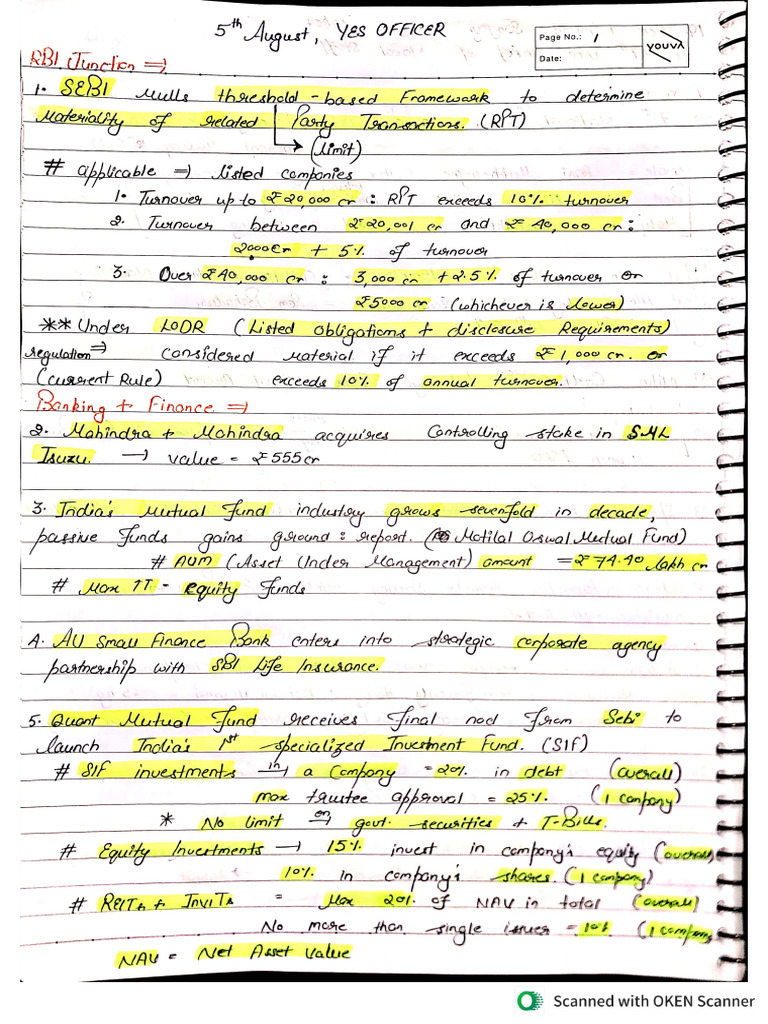 5th August, YES OFFICER
Page No.: 1
Date:
youva
RBI Junction ⇒
1. SEBI mulls threshold-based Framework to determine
Materiality of related Party Transactions. (RPT)
(limit)
# applicable ⇒ listed companies
1. Turnover up to ₹20,000 cr : RPT exceeds 10% turnover
2. Turnover between ₹20,001 cr and ₹40,000 cr :
2000 cr + 5% of turnover
3. Over ₹40,000 cr : 3,000 cr + 2.5% of turnover or
₹5000 cr (whichever is lower)
** Under LODR (Listed obligations + disclosure Requirements)
regulation ⇒ considered material if it exceeds ₹1,000 cr. or
(current Rule) exceeds 10% of annual turnover.
Banking + Finance ⇒
2. Mahindra + Mahindra acquires controlling stake in SML
Isuzu. → value = ₹555cr
3. India's Mutual Fund industry grows sevenfold in decade,
passive funds gains ground : report. (Motilal Oswal Mutual Fund)
# AUM (Asset Under Management) amount = ₹74.40 lakh cr
# Max ↑↑ - equity Funds
4. AU Small Finance Bank enters into strategic corporate agency
partnership with SBI Life Insurance.
5. Quant Mutual Fund receives final nod from Sebi to
launch India's 1st specialized Investment Fund. (SIF)
# SIF investments in → a company = 20% in debt (overall)
max trustee approval = 25% (1 company)
* No limit on ⇒ govt. securities + T-Bills.
# Equity Investments → 15% invest in company's equity (overall)
10% in company's shares. (1 company)
# REITs + InvITs = Max 20% of NAV in total (overall)
No more than single issuer = 10% (1 company
NAV = Net Asset Value
Scanned with OKEN Scanner